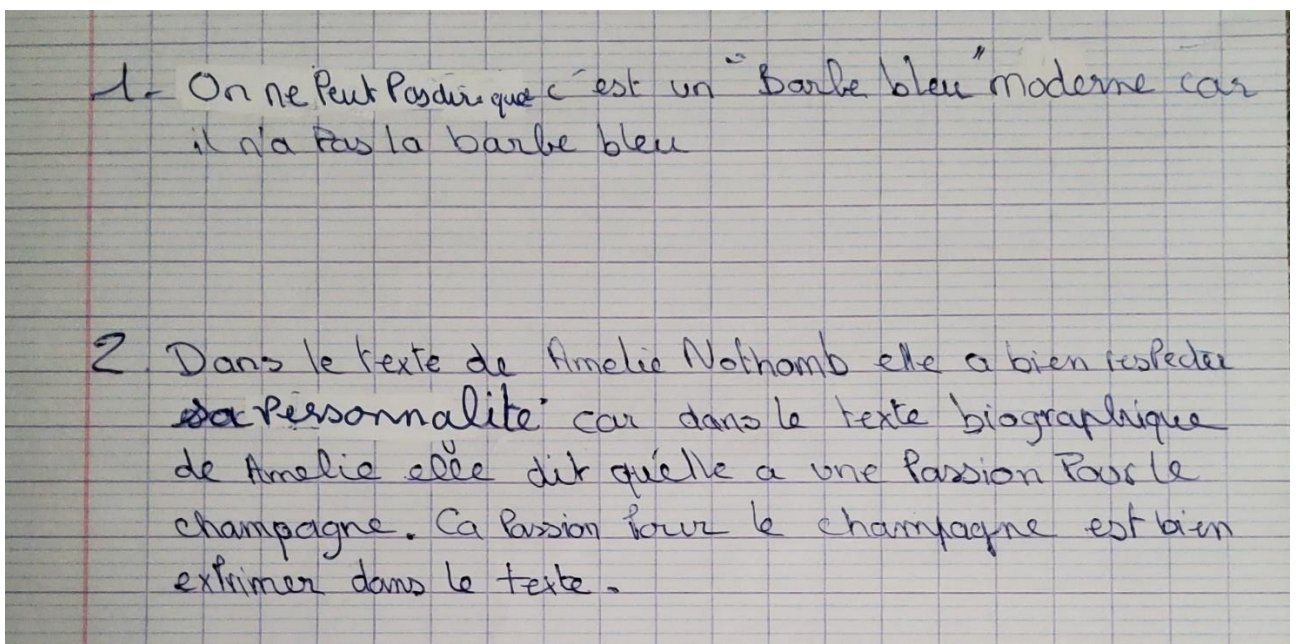 1- On ne Peut Pas dire que c'est un "Barbe bleu" moderne car
il n'a Pas la barbe bleu
2. Dans le texte de Amelie Nothomb elle a bien respecter
sa Personnalité car dans le texte biographique
de Amelie elle dit qu'elle a une Passion Pour le
champagne. Ca Passion Pour le champagne est bien
exPrimer dans le texte.